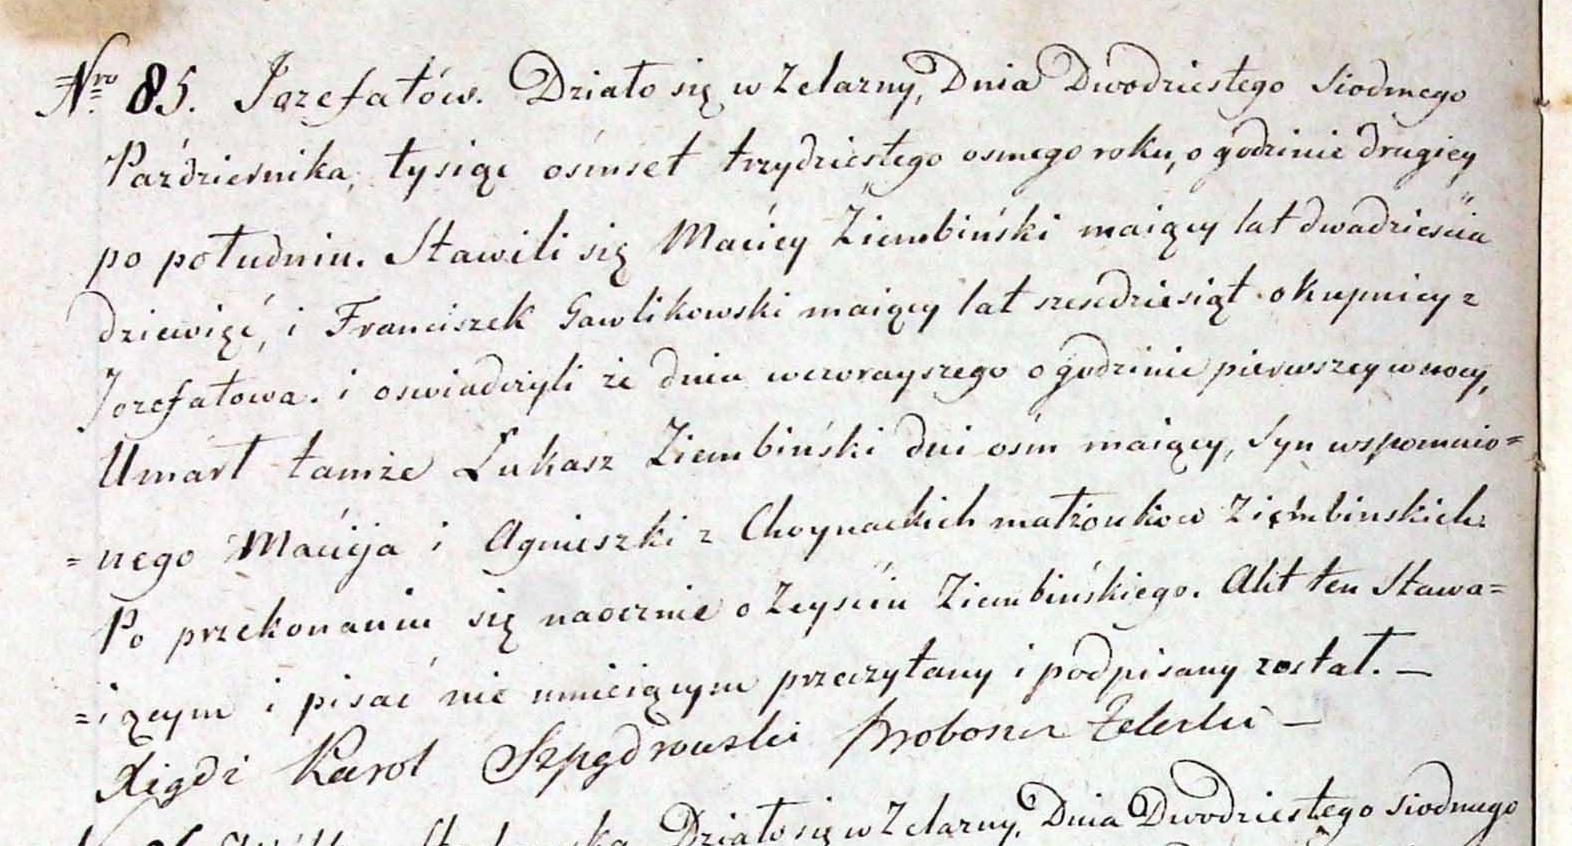 Nro 85. Jozefatów. Działo się w Zelazny, Dnia Dwodziestego Siodmego
Października, tysiąc ośmset trzydziestego osmego roku, o godzinie drugiey
po południu. Stawili się Maciey Ziembiński maiący lat dwadzieścia
dziewięć, i Franciszek Gawlikowski maiący lat szesdziesiąt okupnicy z
Jozefatowa. i oswiadczyli że dniu wczorayszego o godzinie pierwszey w nocy,
Umarł tamże Łukasz Ziembiński dni ośm maiący, Syn wspomnio=
=nego Macieja i Agnieszki z Choynackich małżonkow Ziembinskich.
Po przekonaniu się naocznie o Zeyściu Ziembińskiego. Akt ten Stawa=
=iącym i pisać nie umieiącym przeczytany i podpisany został. —
Xiądz Karol Proboszcz —
Działo się w Zelazny, Dnia Dwodziestego Siodmego